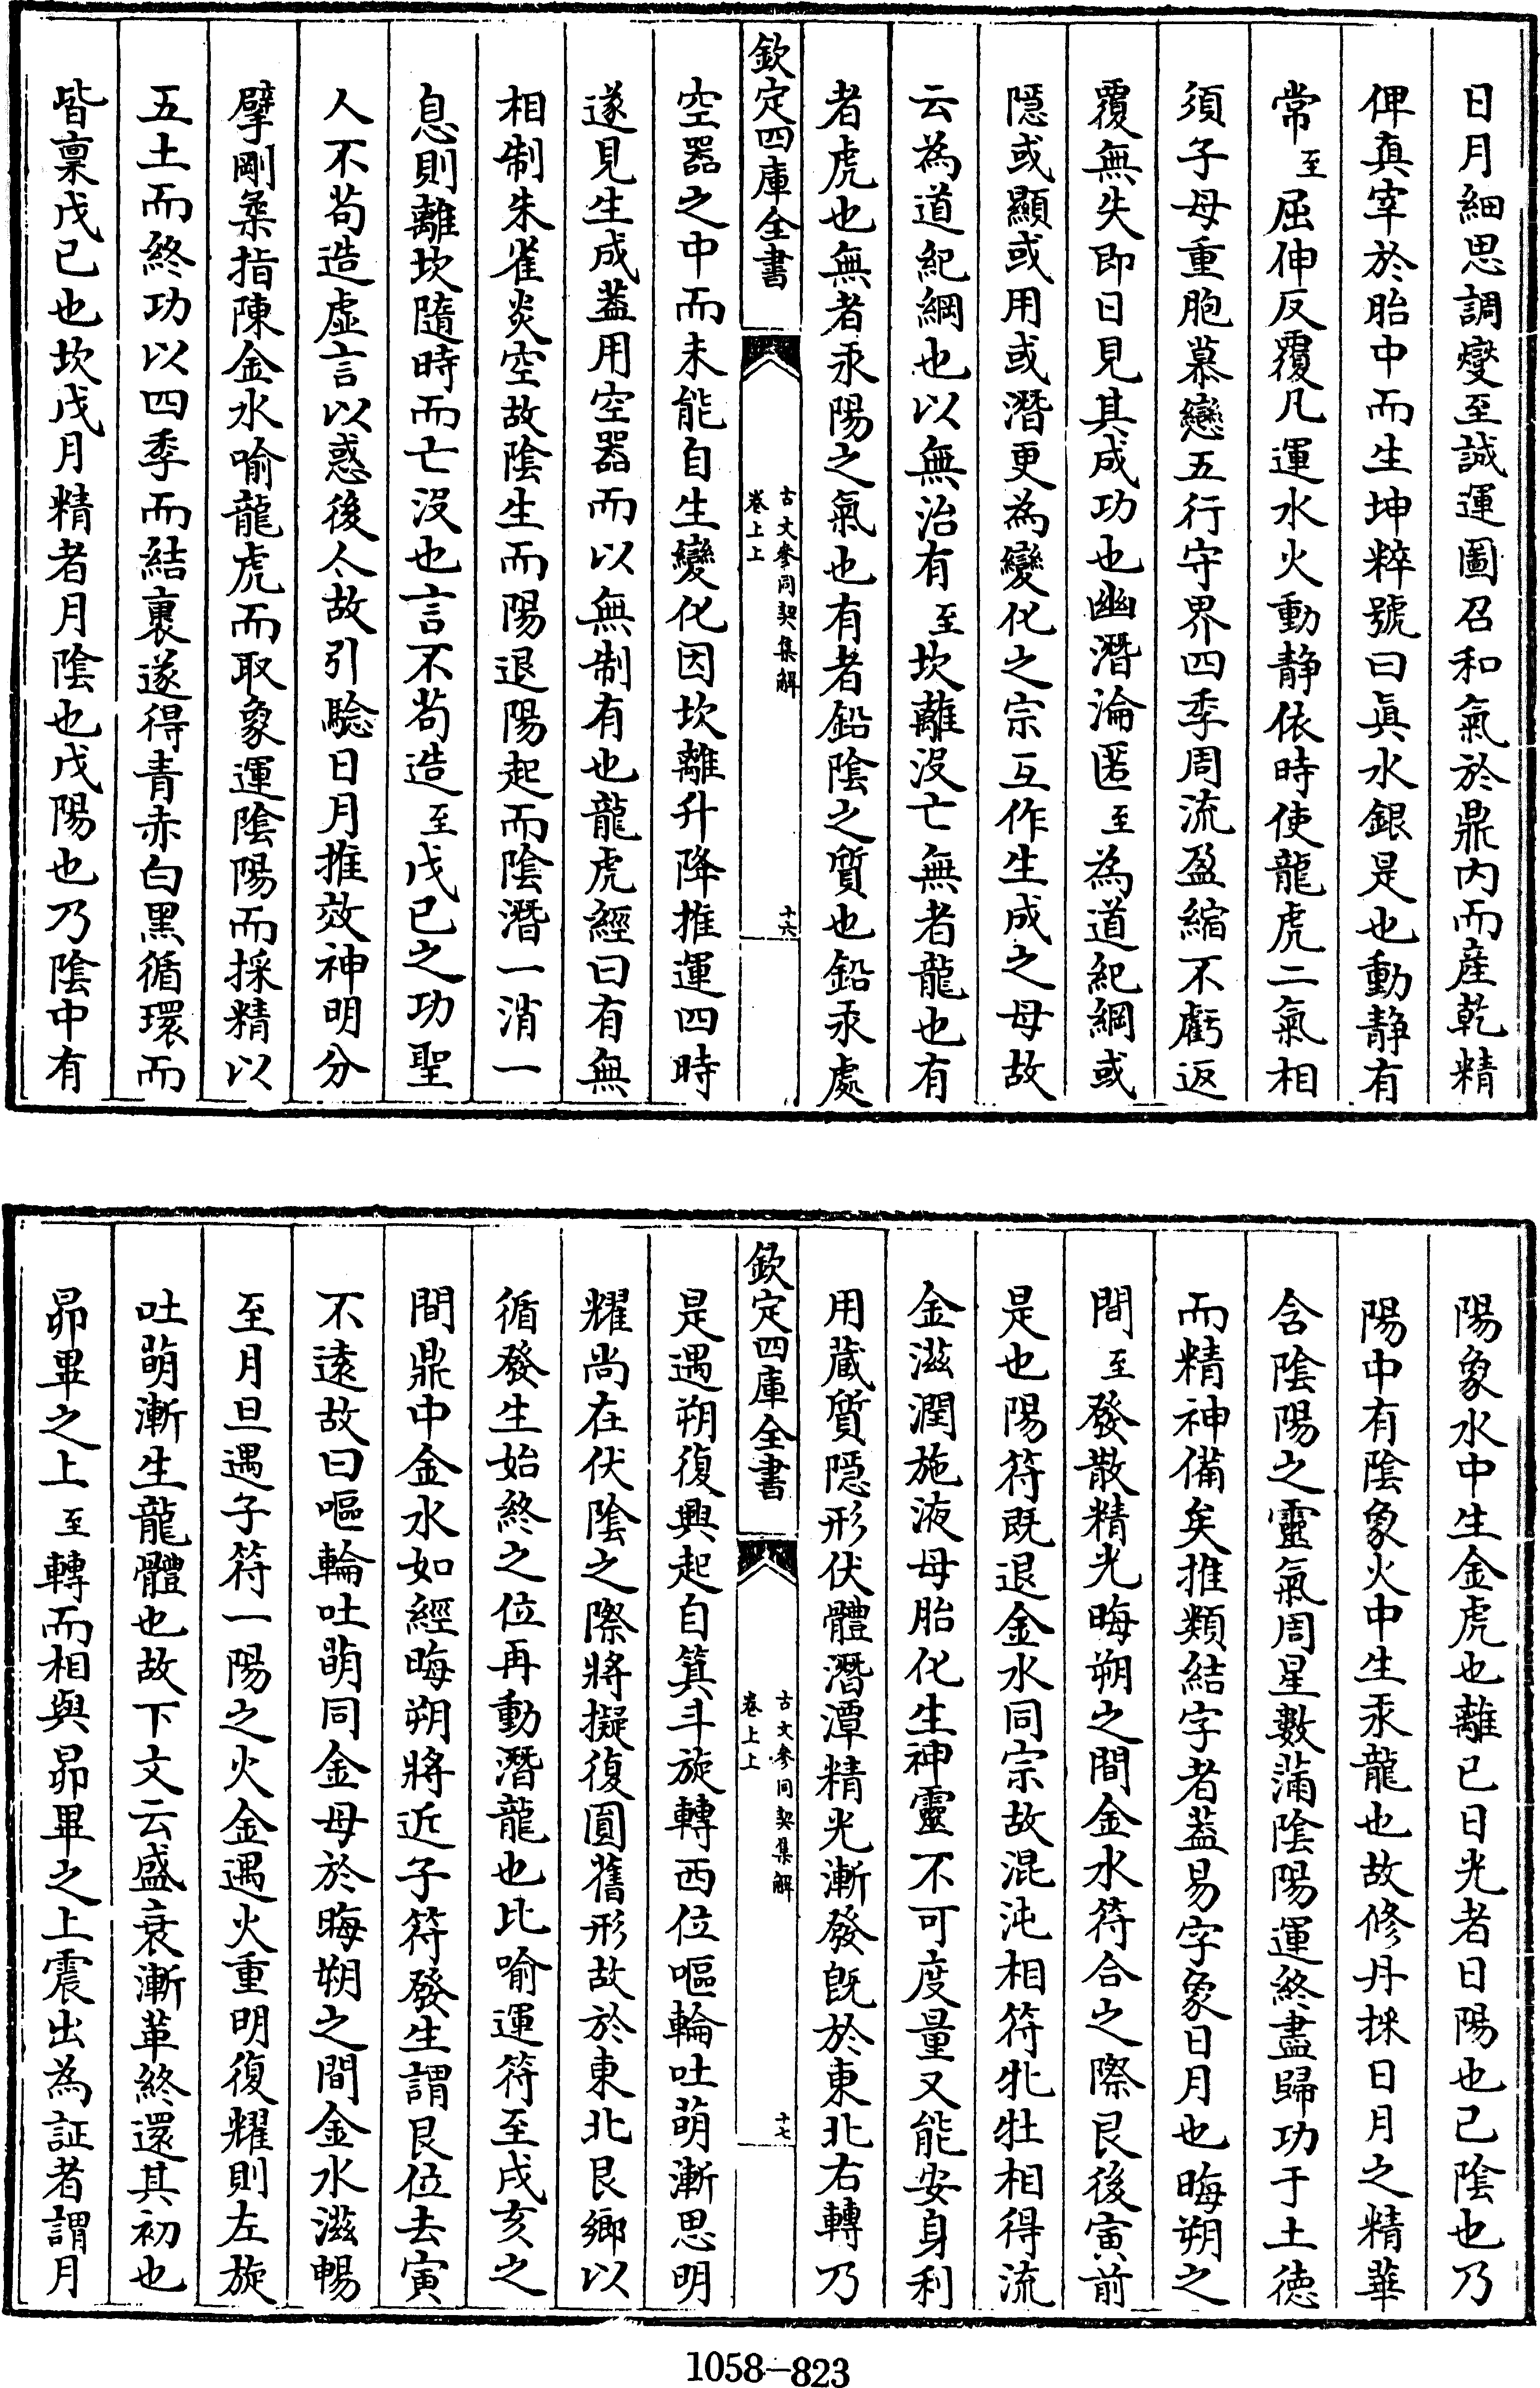 日月細思調燮至誠運圖召和氣於鼎内而産乾精
俾真宰於胎中而生坤粹號曰真水銀是也動静有
常至屈伸反覆凡運水火動静依時使龍虎二氣相
須子母重胞慕戀五行守界四季周流盈縮不虧返
覆無失即日見其成功也幽潛淪匿至為道紀綱或
隱或顯或用或潛更為變化之宗互作生成之母故
云為道紀綱也以無治有至坎離没亡無者龍也有
者虎也無者汞陽之氣也有者鉛陰之質也鉛汞處
欽定四庫全書
古文參同契集解
卷上上
十六
空器之中而未能自生變化因坎離升降推運四時
遂見生成葢用空器而以無制有也龍虎經曰有無
相制朱雀炎空故陰生而陽退陽起而陰潛一消一
息則離坎隨時而亡没也言不茍造至戊己之功聖
人不茍造虚言以惑後人故引驗日月推效神明分
擘剛柔指陳金水喻龍虎而取象運陰陽而採精以
五土而終功以四季而結裹遂得青赤白黑循環而
皆稟戊己也坎戊月精者月陰也戊陽也乃陰中有
陽象水中生金虎也離己日光者日陽也己陰也乃
陽中有陰象火中生汞龍也故修丹採日月之精華
含陰陽之靈氣周星數滿陰陽運終盡歸功于土德
而精神備矣推類結字者葢易字象日月也晦朔之
間至發散精光晦朔之間金水符合之際艮後寅前
是也陽符既退金水同宗故混沌相符牝牡相得流
金滋潤施液母胎化生神靈不可度量又能安身利
用藏質隱形伏體潛潭精光漸發既於東北右轉乃
欽定四庫全書
古文參同契集解
卷上上
十七
是遇朔復興起自箕斗旋轉西位嘔輪吐萌漸思明
耀尚在伏陰之際將擬復圓舊形故於東北艮鄉以
循發生始終之位再動潛龍也比喻運符至戌亥之
間鼎中金水如經晦朔將近子符發生謂艮位去寅
不遠故曰嘔輪吐萌同金母於晦朔之間金水滋暢
至月旦遇子符一陽之火金遇火重明復耀則左旋
吐萌漸生龍體也故下文云盛衰漸革終還其初也
昴畢之上至轉而相與昴畢之上震出為証者謂月
1058-823